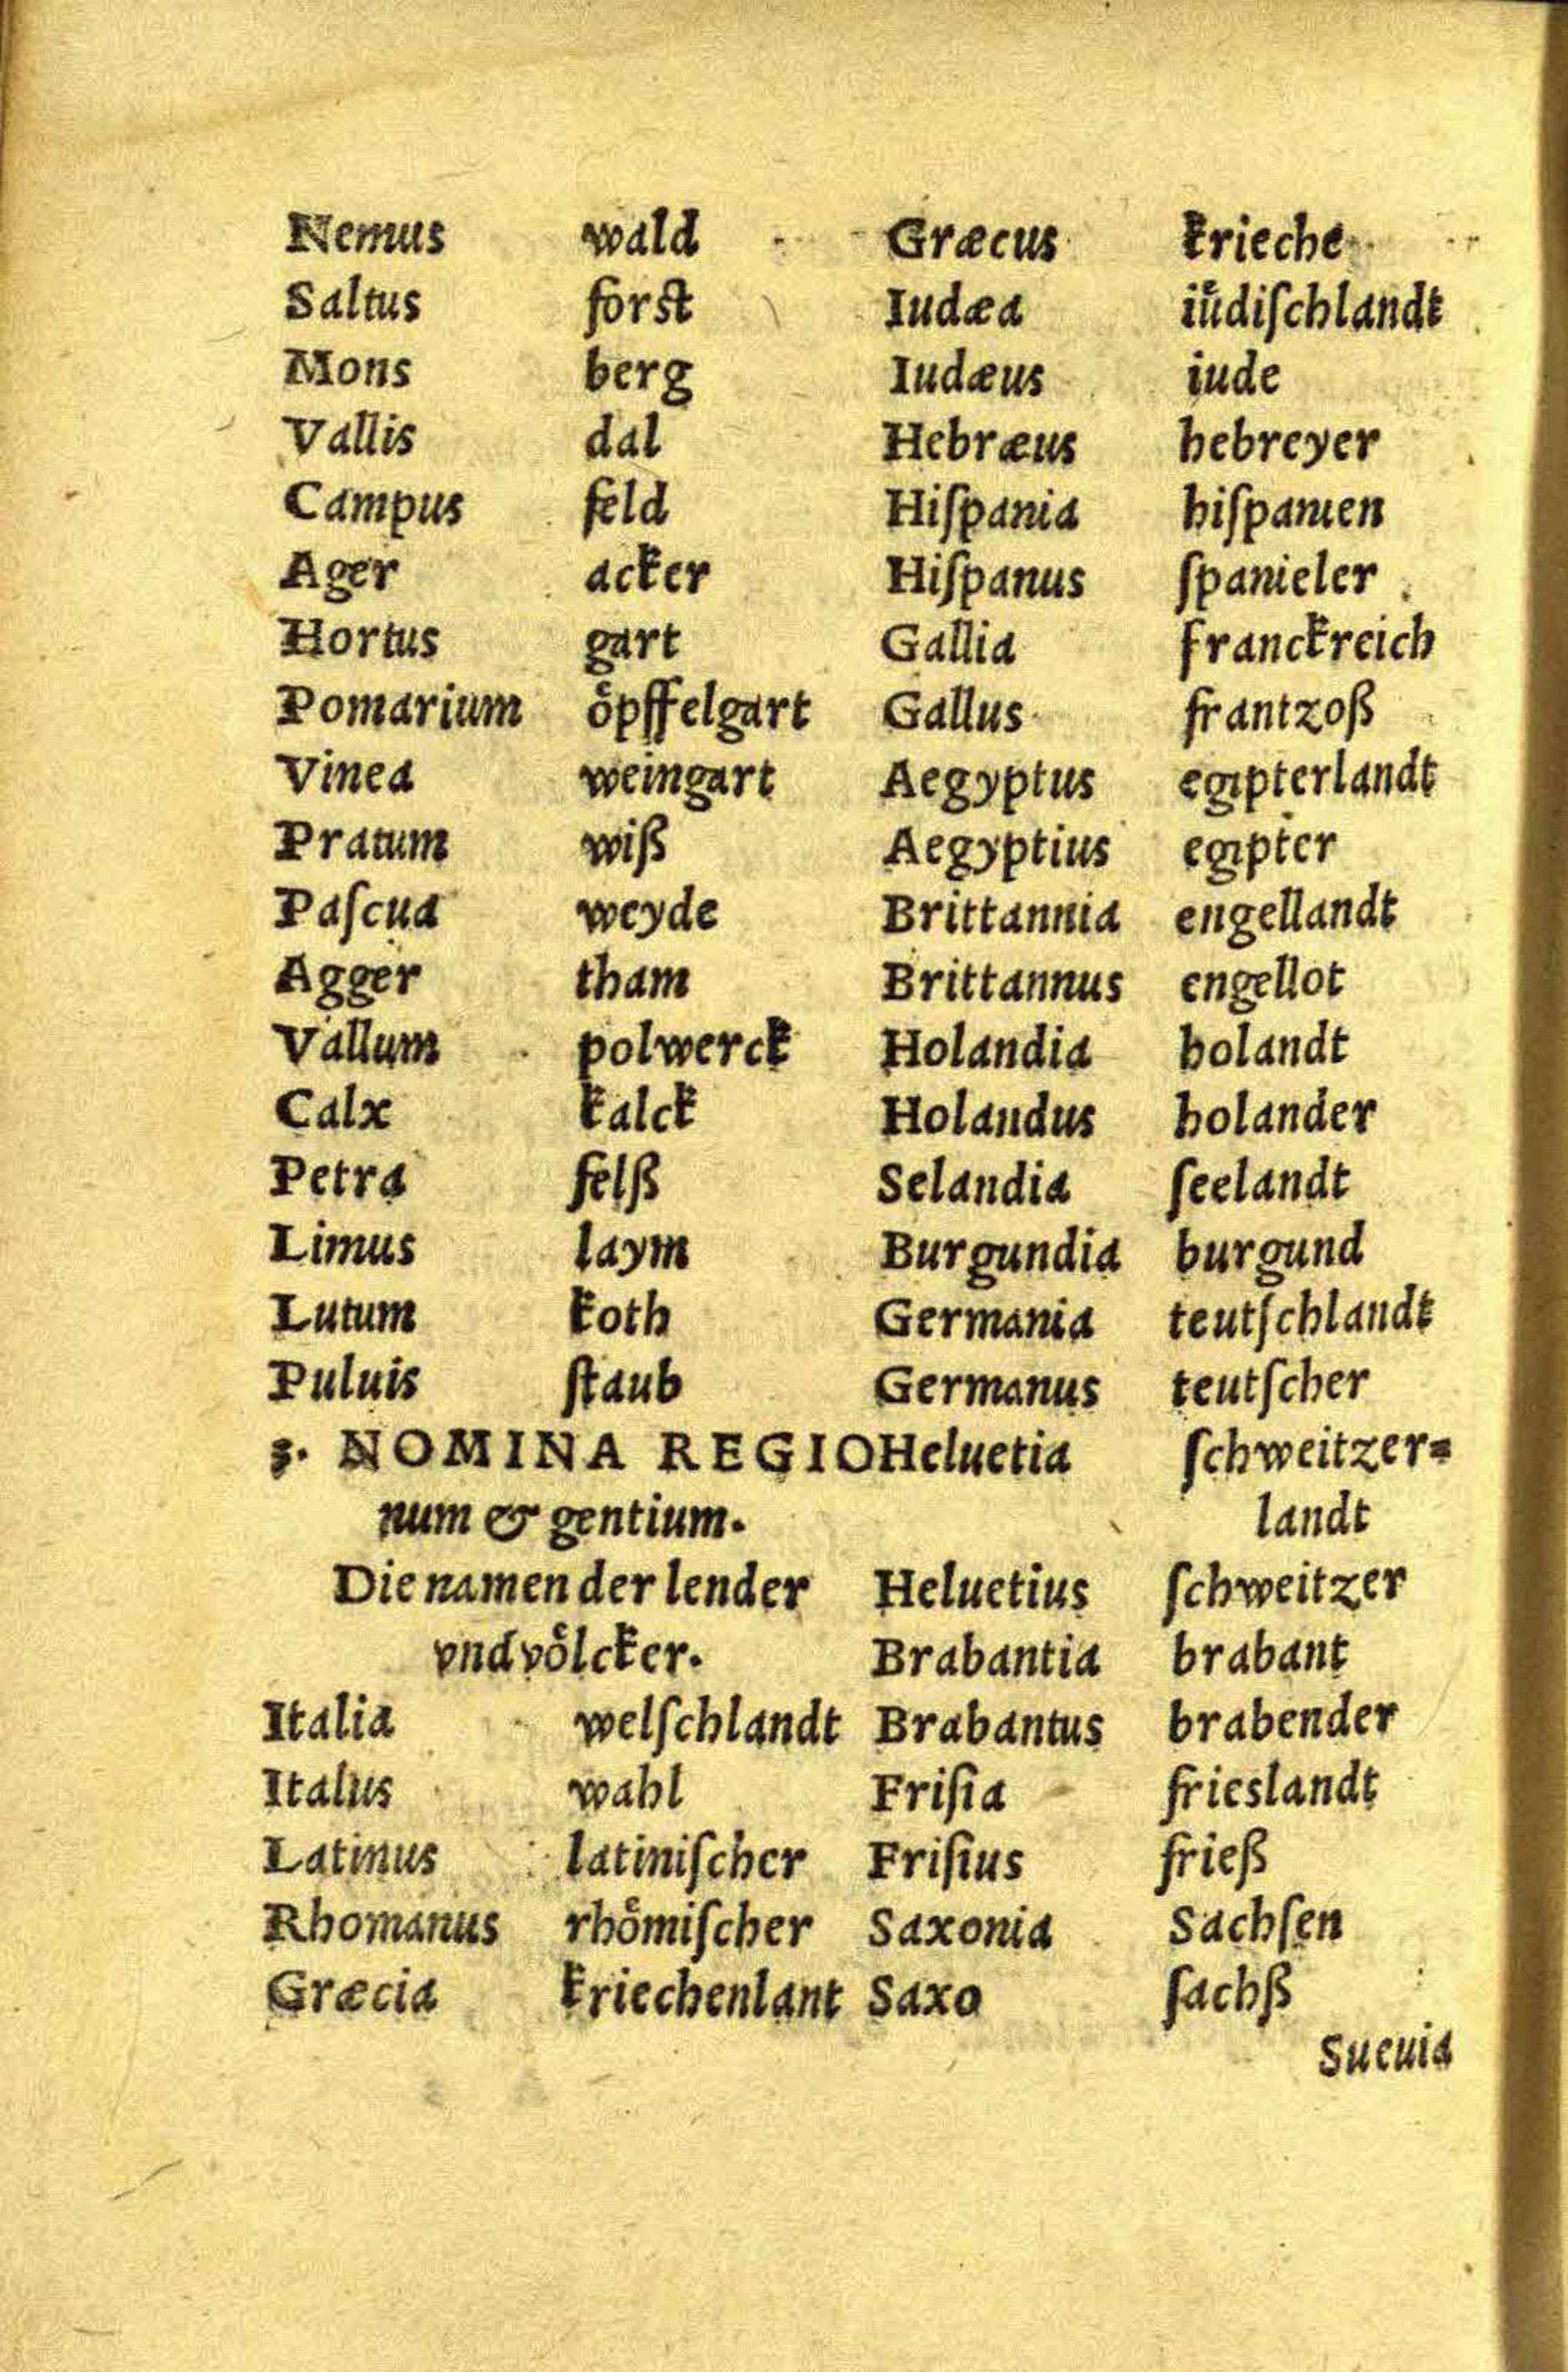 Nemus wald
Saltus forst
Mons berg
Vallis dal
Campus feld
Ager acker
Hortus gart
Pomarium oͤpffelgart
Vinea weingart
Pratum wiß
Paſcua weyde
Agger tham
Vallum polwerck
Calx kalck
Petra felß
Limus laym
Lutum koth
Puluis ſtaub
3. NOMINA REGIO
num & gentium.
Die namen der lender
vnd voͤlcker.
Italia welſchlandt
Italus wahl
Latinus latiniſcher
Rhomanus rhoͤmiſcher
Græcia kriechenlant
Græcus krieche
Iudæa iuͤdiſchlandt
Iudæus iude
Hebræus hebreyer
Hiſpania hiſpanien
Hiſpanus ſpanieler
Gallia franckreich
Gallus frantzoß
Aegyptus egipterlandt
Aegyptius egipter
Brittannia engellandt
Brittannus engellot
Holandia holandt
Holandus holander
Selandia ſeelandt
Burgundia burgund
Germania teutſchlandt
Germanus teutſcher
Heluetia ſchweitzer=
landt
Heluetius ſchweitzer
Brabantia brabant
Brabantus brabender
Friſia frieslandt
Friſius frieß
Saxonia Sachſen
Saxo ſachß
Sueuia